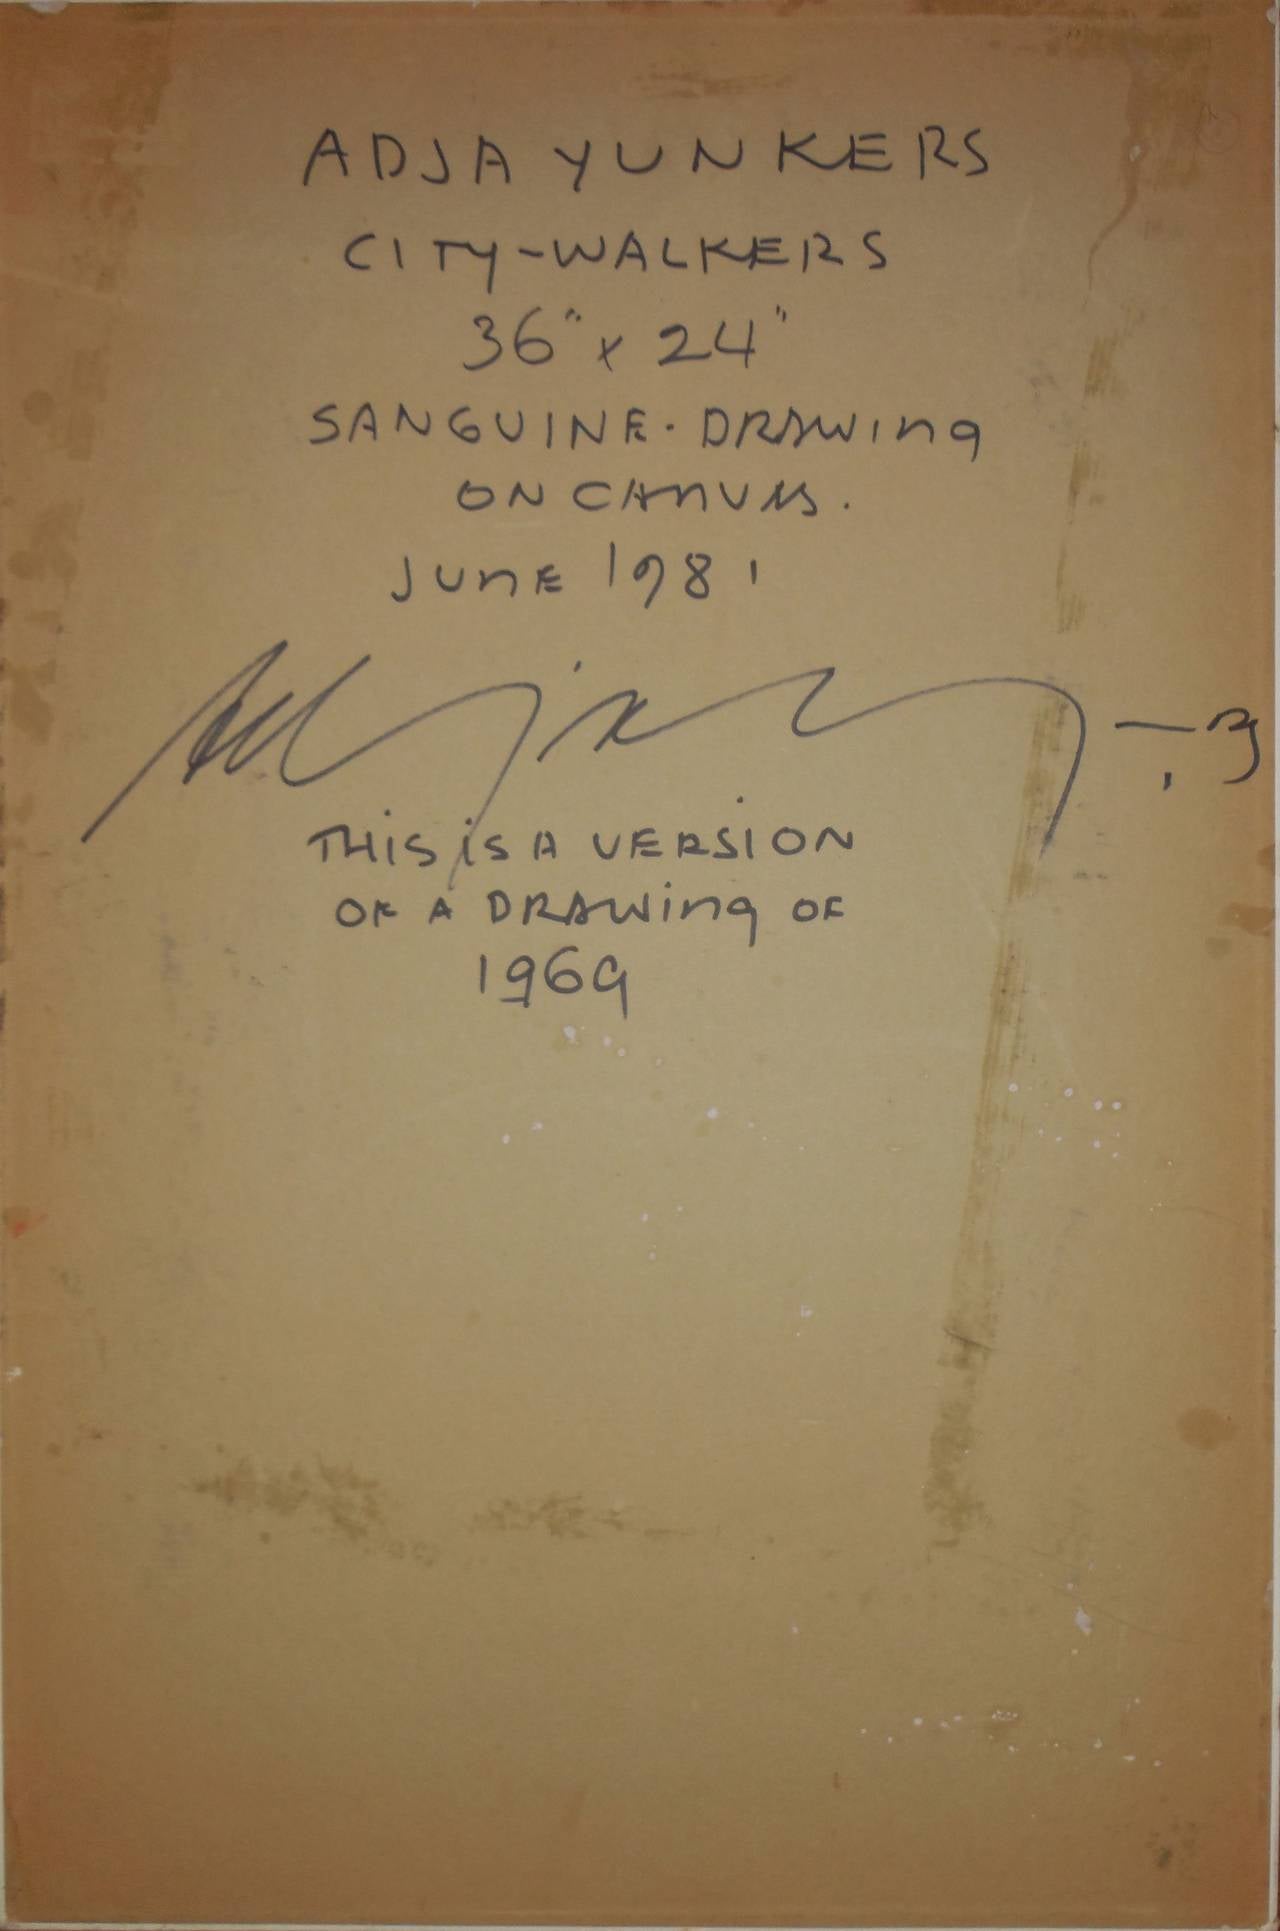 ADJA YUNKERS
CITY-WALKERS
36" x 24"
SANGUINE. DRAWING
ON CANVAS.
JUNE 1981
THIS IS A VERSION
OF A DRAWING OF
1969